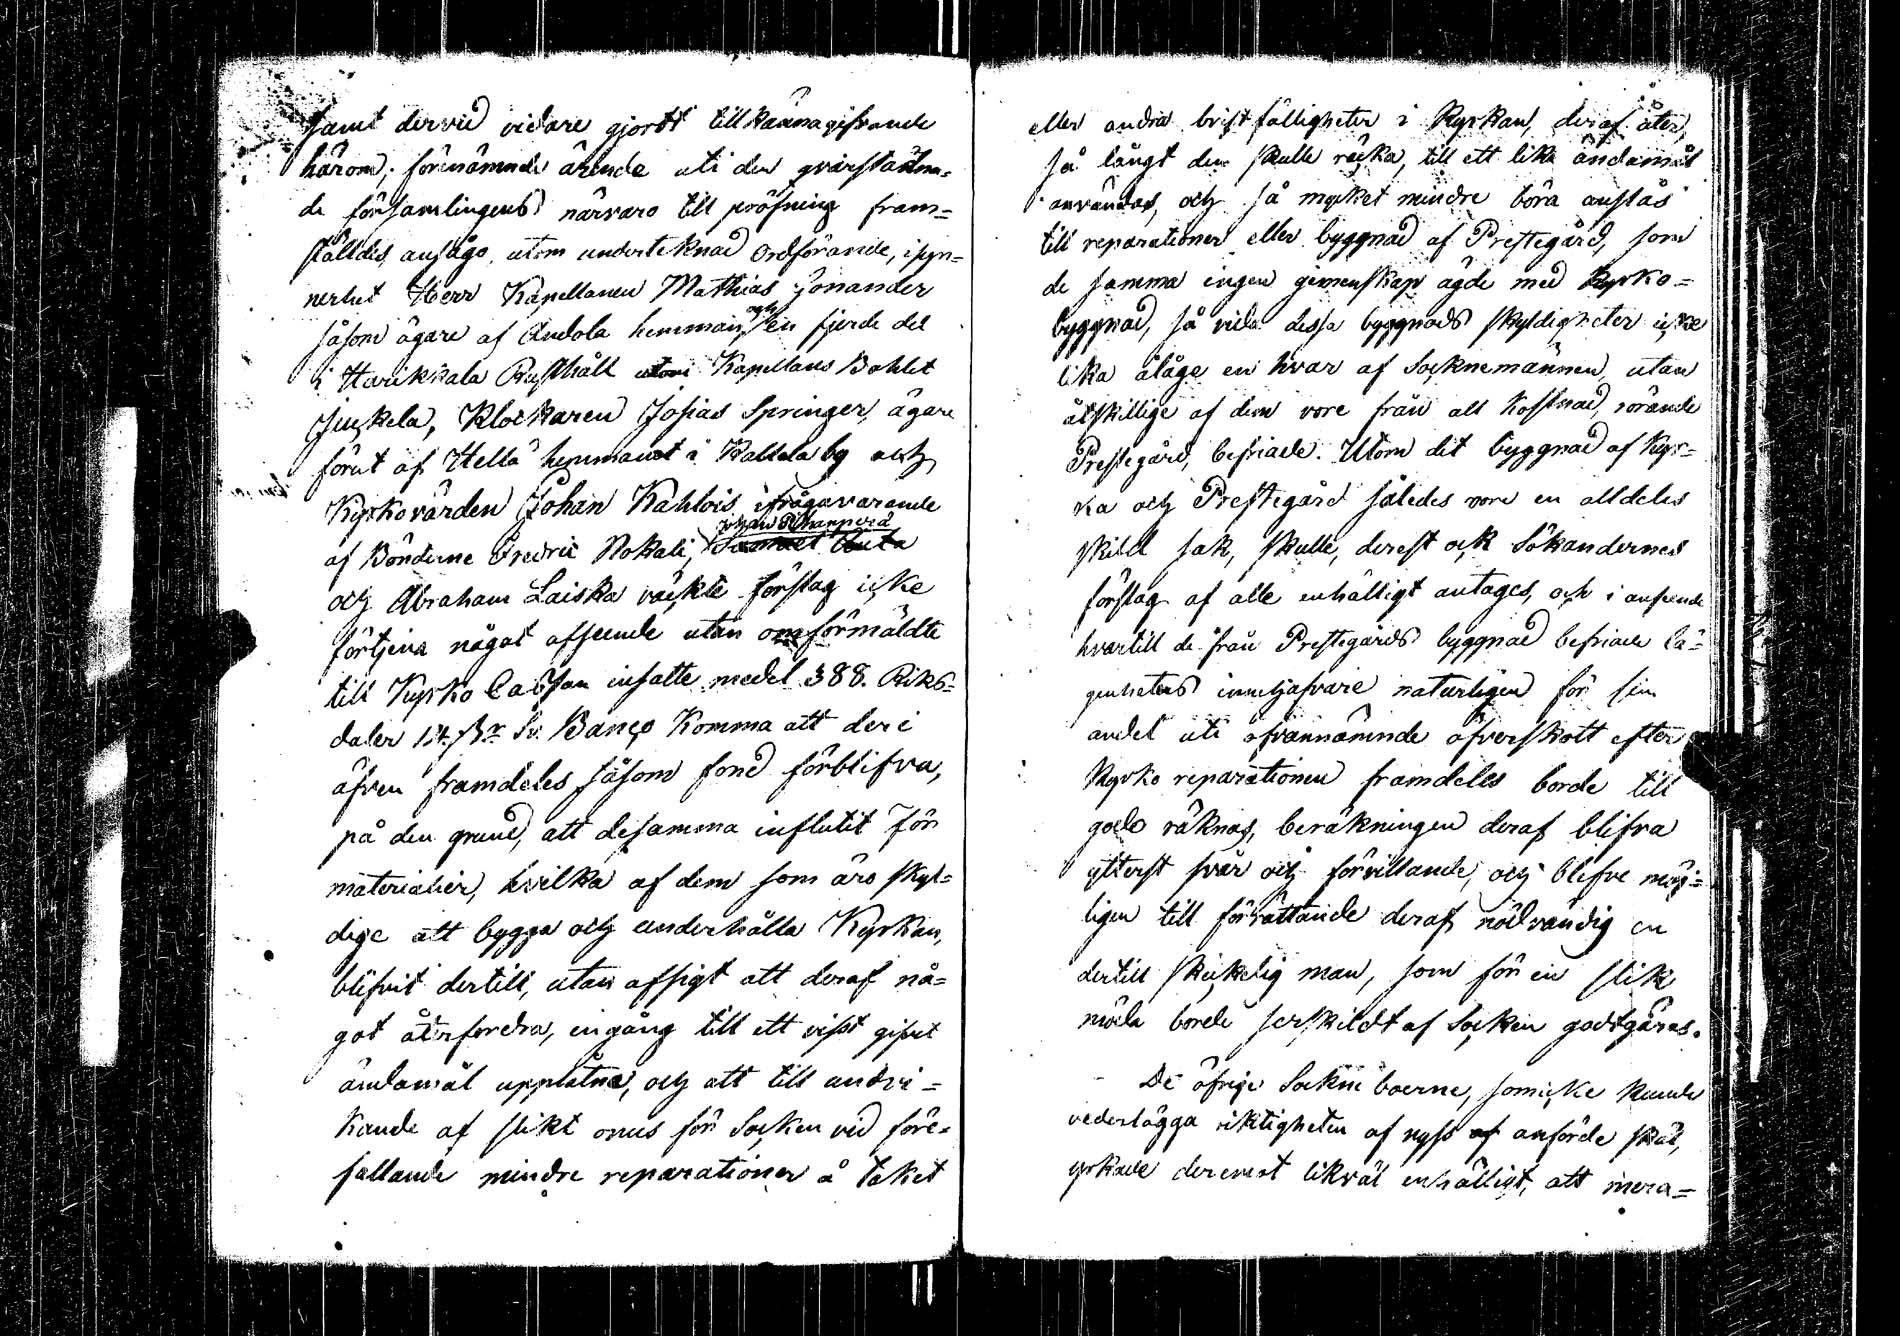 samt dervid vidare gjordt tillkännagifvande
härom, förenämnde ärende uti den qvarstadna-
de församlingens närvaro till pröfning fram-
stäldes, ansågo, utom undertecknad ordförande, isyn-
nerhet Herr Kapellanen Mathias Jonander
såsom ägare af Andola hemman, och en fjerde del
i Harikkala Rusthåll utom Kapellans Bohlet
Juckela, Klockaren Josias Springer, ägare
förut af Hella hemmanet i Kallela by och
Kyrkovärden Johan Kahlois, ifrågavarande
af Bönderne Fredric Nokali, Johan Pihanperä
och Abraham Laiska väckte förslag icke
förtjena något afseende utan omförmäldte
till Kyrko Cassan insatte medel 388. Riks-
daler 14 sr Sv. Banco komma att der i
äfven framdeles såsom fond förblifva,
på den grund, att desamma influtit för
materialier, hvilka af dem som äro skyl-
dige att bygga och underhålla Kyrkan,
blifvit dertill, utan afsigt att deraf nå-
got återfordra, en gång till ett visst gifvet
ändamål upplåtne, och att till undvi-
kande af slikt onus för Socken vid före-
fallande mindre reparationer å taket
eller andra bristfälligheter i Kyrkan, deraf åter,
så långt den skulle räcka, till ett lika ändamål
användas, och så mycket mindre böra anslås
till reparationer eller byggnad af Prestegård, som
de samma ingen gemenskap ägde med Kyrko-
byggnad, så vida dessa byggnads skyldigheter icke
lika ålåge en hvar af Socknemännen, utan
åtskillige af dem vore från all kostnad, rörande
Prestegård, befriade. Utom det byggnad af Kyr-
ka och Prestegård således vore en alldeles
skild sak, skulle, derest ock Sökandernes
förslag af alle enhälligt antages, och i anseende
hvartill de från Prestegårds byggnad befriade lä-
genheters innehafvare naturligen för sin
andel uti ofvannämnde öfverskott efter
Kyrko reparationen framdeles borde till
godo räknas, beräkningen deraf blifva
ytterst svår och förvillande, och blefve möj-
ligen till förrättande deraf nödvändig en
dertill skickelig man, som för en slik
möda borde serskildt af Socken godtgöras.
De öfrige Sockneboerne, som icke kunde
vederlägga riktigheten af nyss af anförde skäl,
yrkade deremot likväl enhälligt, att mera-